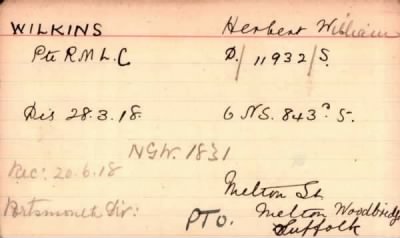 WILKINS Herbert William
Pte R.M.L.C D/11932/S.
Dis 28.3.18. 6 N.S. 843A 5.
NGW. 1831
Rec: 20.6.18
Melton St
Portsmouth Div: Melton Woodbridge
PTO. Suffolk